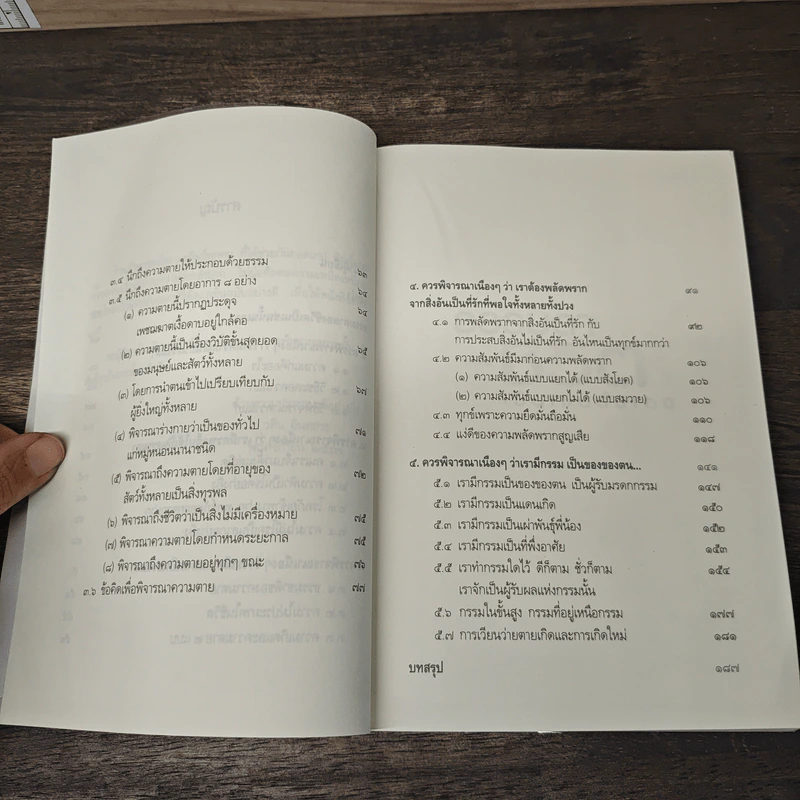 ๓.๔ นึกถึงความตายให้ประกอบด้วยธรรม ๖๓
๓.๕ นึกถึงความตายโดยอาการ ๘ อย่าง ๖๔
(๑) ความตายนี้ปรากฏประดุจ ๖๔
เพชฌฆาตเงื้อดาบอยู่ใกล้คอ
(๒) ความตายนี้เป็นเรื่องวิบัติขั้นสุดยอด ๖๕
ของมนุษย์และสัตว์ทั้งหลาย
(๓) โดยการนำตนเข้าไปเปรียบเทียบกับ ๖๗
ผู้ยิ่งใหญ่ทั้งหลาย
(๔) พิจารณาร่างกายว่าเป็นของทั่วไป ๗๑
แก่หมู่หนอนนานาชนิด
(๕) พิจารณาถึงความตายโดยที่อายุของ ๗๒
สัตว์ทั้งหลายเป็นสิ่งทุรพล
(๖) พิจารณาถึงชีวิตว่าเป็นสิ่งไม่มีเครื่องหมาย ๗๕
(๗) พิจารณาความตายโดยกำหนดระยะกาล ๗๕
(๘) พิจารณาถึงความตายอยู่ทุกๆ ขณะ ๗๖
๓.๖ ข้อคิดเพื่อพิจารณาความตาย ๗๗
๔. ควรพิจารณาเนืองๆ ว่า เราต้องพลัดพราก ๙๑
จากสิ่งอันเป็นที่รักที่พอใจทั้งหลายทั้งปวง
๔.๑ การพลัดพรากจากสิ่งอันเป็นที่รัก กับ ๙๒
การประสบสิ่งอันไม่เป็นที่รัก อันไหนเป็นทุกข์มากกว่า
๔.๒ ความสัมพันธ์มีมาก่อนความพลัดพราก ๑๐๖
(๑) ความสัมพันธ์แบบแยกได้ (แบบสังโยค) ๑๐๖
(๒) ความสัมพันธ์แบบแยกไม่ได้ (แบบสมวาย) ๑๐๖
๔.๓ ทุกข์เพราะความยึดมั่นถือมั่น ๑๑๐
๔.๔ แง่ดีของความพลัดพรากสูญเสีย ๑๑๘
๕. ควรพิจารณาเนืองๆ ว่าเรามีกรรม เป็นของของตน... ๑๔๑
๕.๑ เรามีกรรมเป็นของของตน เป็นผู้รับมรดกกรรม ๑๔๗
๕.๒ เรามีกรรมเป็นแดนเกิด ๑๕๐
๕.๓ เรามีกรรมเป็นเผ่าพันธุ์พี่น้อง ๑๕๒
๕.๔ เรามีกรรมเป็นที่พึ่งอาศัย ๑๕๓
๕.๕ เราทำกรรมใดไว้ ดีก็ตาม ชั่วก็ตาม ๑๕๔
เราจักเป็นผู้รับผลแห่งกรรมนั้น
๕.๖ กรรมในขั้นสูง กรรมที่อยู่เหนือกรรม ๑๗๗
๕.๗ การเวียนว่ายตายเกิดและการเกิดใหม่ ๑๘๑
บทสรุป ๑๘๗